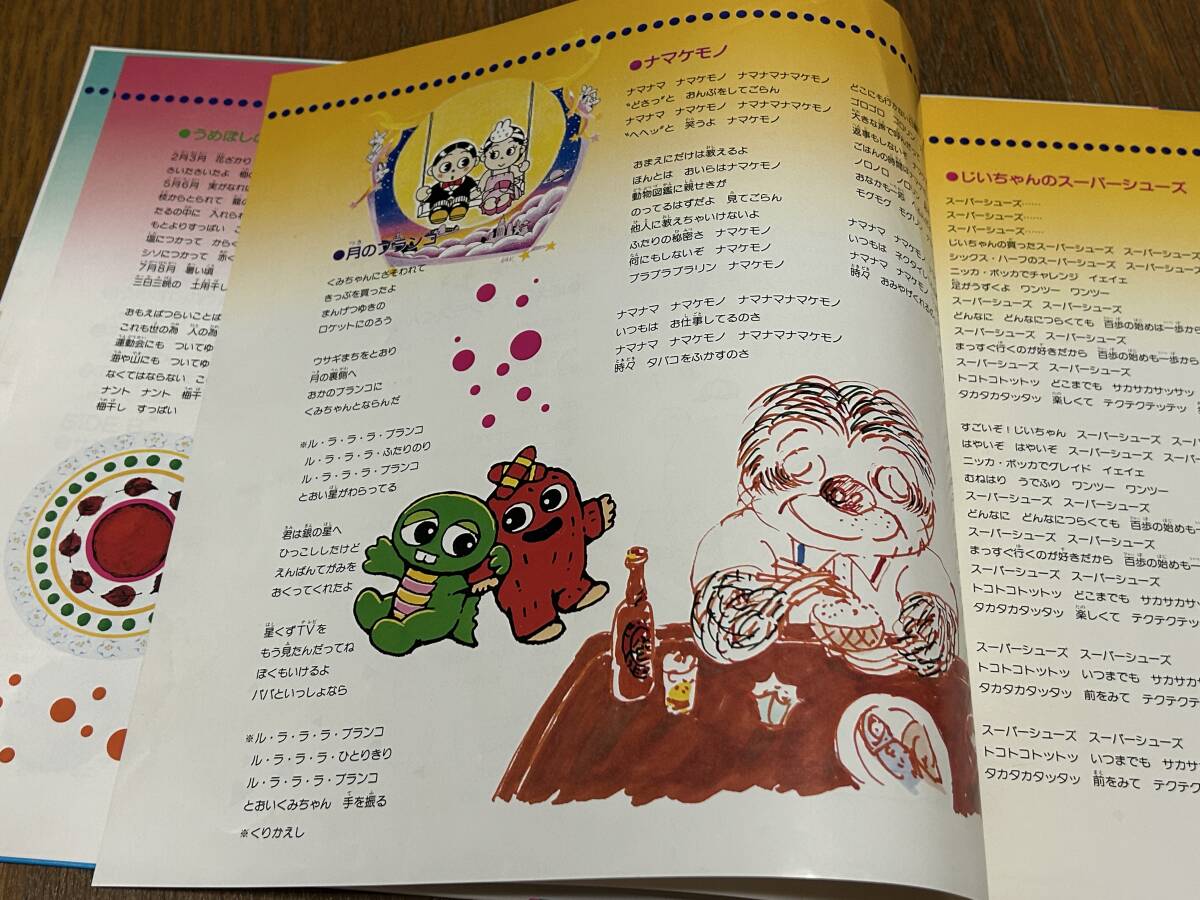 ●うめぼしの
2月3月 花ざかり
さいたさいたよ 梅の
5月6月 実がなれば
枝からとられて 籠の
たるの中に 入れられ
もとよりすっぱい こ
塩につかって からく
シソにつかって 赤く
7月8月 暑い頃
三日三晩の 土用干し
おもえばつらいことば
これも世の為 人の為
運動会にも ついてゆ
海や山にも ついてゆ
なくてはならない こ
ナント ナント 梅干
梅干し すっぱい
●月のブランコ
くみちゃんにさそわれて
きっぷを買ったよ
まんげつゆきの
ロケットにのろう
ウサギまちをとおり
月の裏側へ
おかのブランコに
くみちゃんとならんだ
※ル・ラ・ラ・ラ・ブランコ
ル・ラ・ラ・ラ・ふたりのり
ル・ラ・ラ・ラ・ブランコ
とおい星がわらってる
君は銀の星へ
ひっこししたけど
えんばんてがみを
おくってくれたよ
星くずTVを
もう見たんだってね
ぼくもいけるよ
パパといっしょなら
※ル・ラ・ラ・ラ・ブランコ
ル・ラ・ラ・ラ・ひとりきり
ル・ラ・ラ・ラ・ブランコ
とおいくみちゃん 手を振る
※くりかえし
●ナマケモノ
ナマナマ ナマケモノ ナマナマナマケモノ
“どさっ”と おんぶをしてごらん
ナマナマ ナマケモノ ナマナマナマケモノ
“ヘヘッ”と 笑うよ ナマケモノ
おまえにだけは教えるよ
ほんとは おいらはナマケモノ
動物図鑑に親せきが
のってるはずだよ 見てごらん
他人に教えちゃいけないよ
ふたりの秘密さ ナマケモノ
何にもしないぞ ナマケモノ
ブラブラブラリン ナマケモノ
ナマナマ ナマケモノ ナマナマナマケモノ
いつもは お仕事してるのさ
ナマナマ ナマケモノ ナマナマナマケモノ
時々 タバコをふかすのさ
どこにも行か
ゴロゴロ
大きな声で呼
返事もしない
ごはんの時間
ノロノロ
おなかも一
モグモグ モグ
ナマナマ ナマケモ
いつもは ネクタイ
ナマナマ ナマケモ
時々 おみやげくれる
●じいちゃんのスーパーシューズ
スーパーシューズ……
スーパーシューズ……
スーパーシューズ……
じいちゃんの買ったスーパーシューズ スーパーシューズ
シックス・ハーフのスーパーシューズ スーパーシューズ
ニッカ・ボッカでチャレンジ イェイェ
足がうずくよ ワンツー ワンツー
スーパーシューズ スーパーシューズ
どんなに どんなにつらくても 百歩の始めは一歩から
スーパーシューズ スーパーシューズ
まっすぐ行くのが好きだから 百歩の始めも一歩から
スーパーシューズ スーパーシューズ
トコトコトットッ どこまでも サカサカサッサッ
タカタカタッタッ 楽しくて テクテクテッテッ
すごいぞ!じいちゃん スーパーシューズ スーパ
はやいぞ はやいぞ スーパーシューズ スーパー
ニッカ・ボッカでグレイド イェイェ
むねはり うでふり ワンツー ワンツー
スーパーシューズ スーパーシューズ
どんなに どんなにつらくても 百歩の始めも一
スーパーシューズ スーパーシューズ
まっすぐ行くのが好きだから 百歩の始めも一
スーパーシューズ スーパーシューズ
トコトコトットッ どこまでも サカサカサ
タカタカタッタッ 楽しくて テクテクテッ
スーパーシューズ スーパーシューズ
トコトコトットッ いつまでも サカサカ
タカタカタッタッ 前をみて テクテクテ
スーパーシューズ スーパーシューズ
トコトコトットッ いつまでも サカサ
タカタカタッタッ 前をみて テクテク